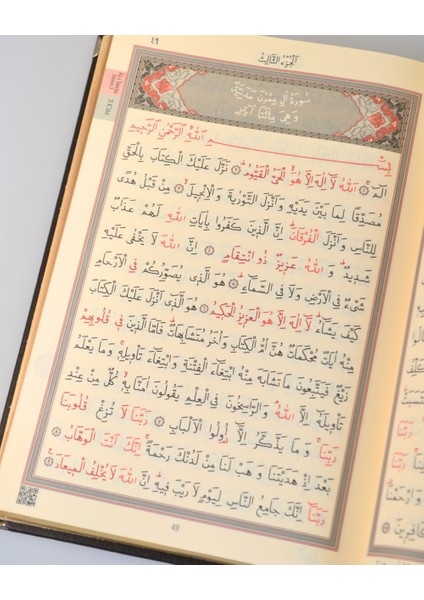 ٤٩
اَلْجُزْءُ الثَّالِثُ
سُورَةُ اٰلِ عِمْرٰنَ مَدَنِيَّةٌ
وَهِيَ مِائَتَا اٰيَةٍ
بِسْمِ اللّٰهِ الرَّحْمٰنِ الرَّحِيمِ
الٓمٓ ۝ اَللّٰهُ لَٓا اِلٰهَ اِلَّا هُوَ الْحَيُّ الْقَيُّومُ ۝ نَزَّلَ عَلَيْكَ الْكِتَابَ بِالْحَقِّ
مُصَدِّقًا لِمَا بَيْنَ يَدَيْهِ وَاَنْزَلَ التَّوْرٰيةَ وَالْاِنْجِيلَ ۝ مِنْ قَبْلُ هُدًى
لِلنَّاسِ وَاَنْزَلَ الْفُرْقَانَ اِنَّ الَّذِينَ كَفَرُوا بِاٰيَاتِ اللّٰهِ لَهُمْ عَذَابٌ
شَدِيدٌ وَاللّٰهُ عَزِيزٌ ذُو انْتِقَامٍ ۝ اِنَّ اللّٰهَ لَا يَخْفٰى عَلَيْهِ
شَيْءٌ فِي الْاَرْضِ وَلَا فِي السَّمَٓاءِ ۝ هُوَ الَّذِي يُصَوِّرُكُمْ فِي الْاَرْحَامِ
كَيْفَ يَشَٓاءُ لَٓا اِلٰهَ اِلَّا هُوَ الْعَزِيزُ الْحَكِيمُ ۝ هُوَ الَّذِٓي اَنْزَلَ عَلَيْكَ الْكِتَابَ
مِنْهُ اٰيَاتٌ مُحْكَمَاتٌ هُنَّ اُمُّ الْكِتَابِ وَاُخَرُ مُتَشَابِهَاتٌ فَاَمَّا الَّذِينَ فِي قُلُوبِهِمْ
زَيْغٌ فَيَتَّبِعُونَ مَا تَشَابَهَ مِنْهُ ابْتِغَٓاءَ الْفِتْنَةِ وَابْتِغَٓاءَ تَأْوِيلِهِ وَمَا يَعْلَمُ
تَأْوِيلَهُٓ اِلَّا اللّٰهُ وَالرَّاسِخُونَ فِي الْعِلْمِ يَقُولُونَ اٰمَنَّا بِهِ كُلٌّ مِنْ عِنْدِ
رَبِّنَا وَمَا يَذَّكَّرُ اِلَّٓا اُولُوا الْاَلْبَابِ ۝ رَبَّنَا لَا تُزِغْ قُلُوبَنَا
بَعْدَ اِذْ هَدَيْتَنَا وَهَبْ لَنَا مِنْ لَدُنْكَ رَحْمَةً اِنَّكَ اَنْتَ الْوَهَّابُ ۝
رَبَّنَٓا اِنَّكَ جَامِعُ النَّاسِ لِيَوْمٍ لَا رَيْبَ فِيهِ اِنَّ اللّٰهَ لَا يُخْلِفُ الْمِيعَادَ ۝
49
3.Cüz